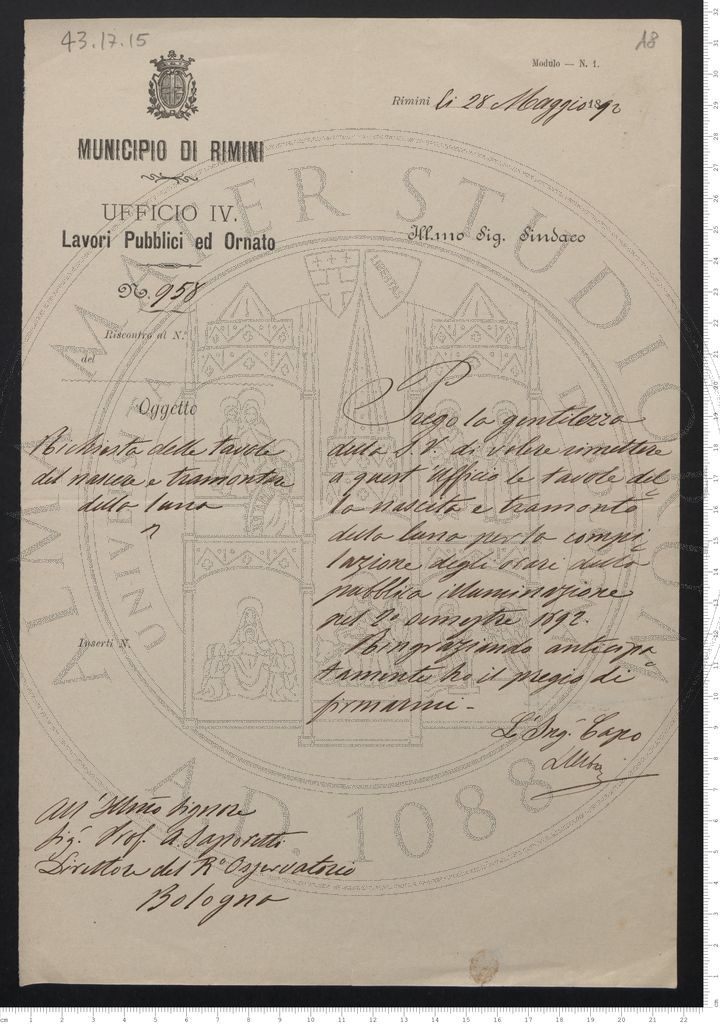 43.17.15
18
Modulo — N. 1.
Rimini li 28 Maggio 1892
MUNICIPIO DI RIMINI
UFFICIO IV.
Lavori Pubblici ed Ornato
Ill.mo Sig. Sindaco
N. 958
Riscontro al N.°
del
Oggetto
Richiesta delle tavole
del nascere e tramontare
della luna
Prego la gentilezza
della S. V. di volere rimettere
a quest'Ufficio le tavole del
la nascita e tramonto
della luna per la compi
lazione degli orari della
pubblica illuminazione
pel 2° semestre 1892.
Ringraziando anticipa
tamente ho il pregio di
firmarmi -
Inserti N.
L'Ing.e Capo
All'Illmo Signore
Sig. Prof. A. Saporetti
Direttore del R° Osservatorio
Bologna
ALMA MATER STUDIORUM
UNIVERSITA
BOLOGNA
LIBERTAS
A.D. 1088